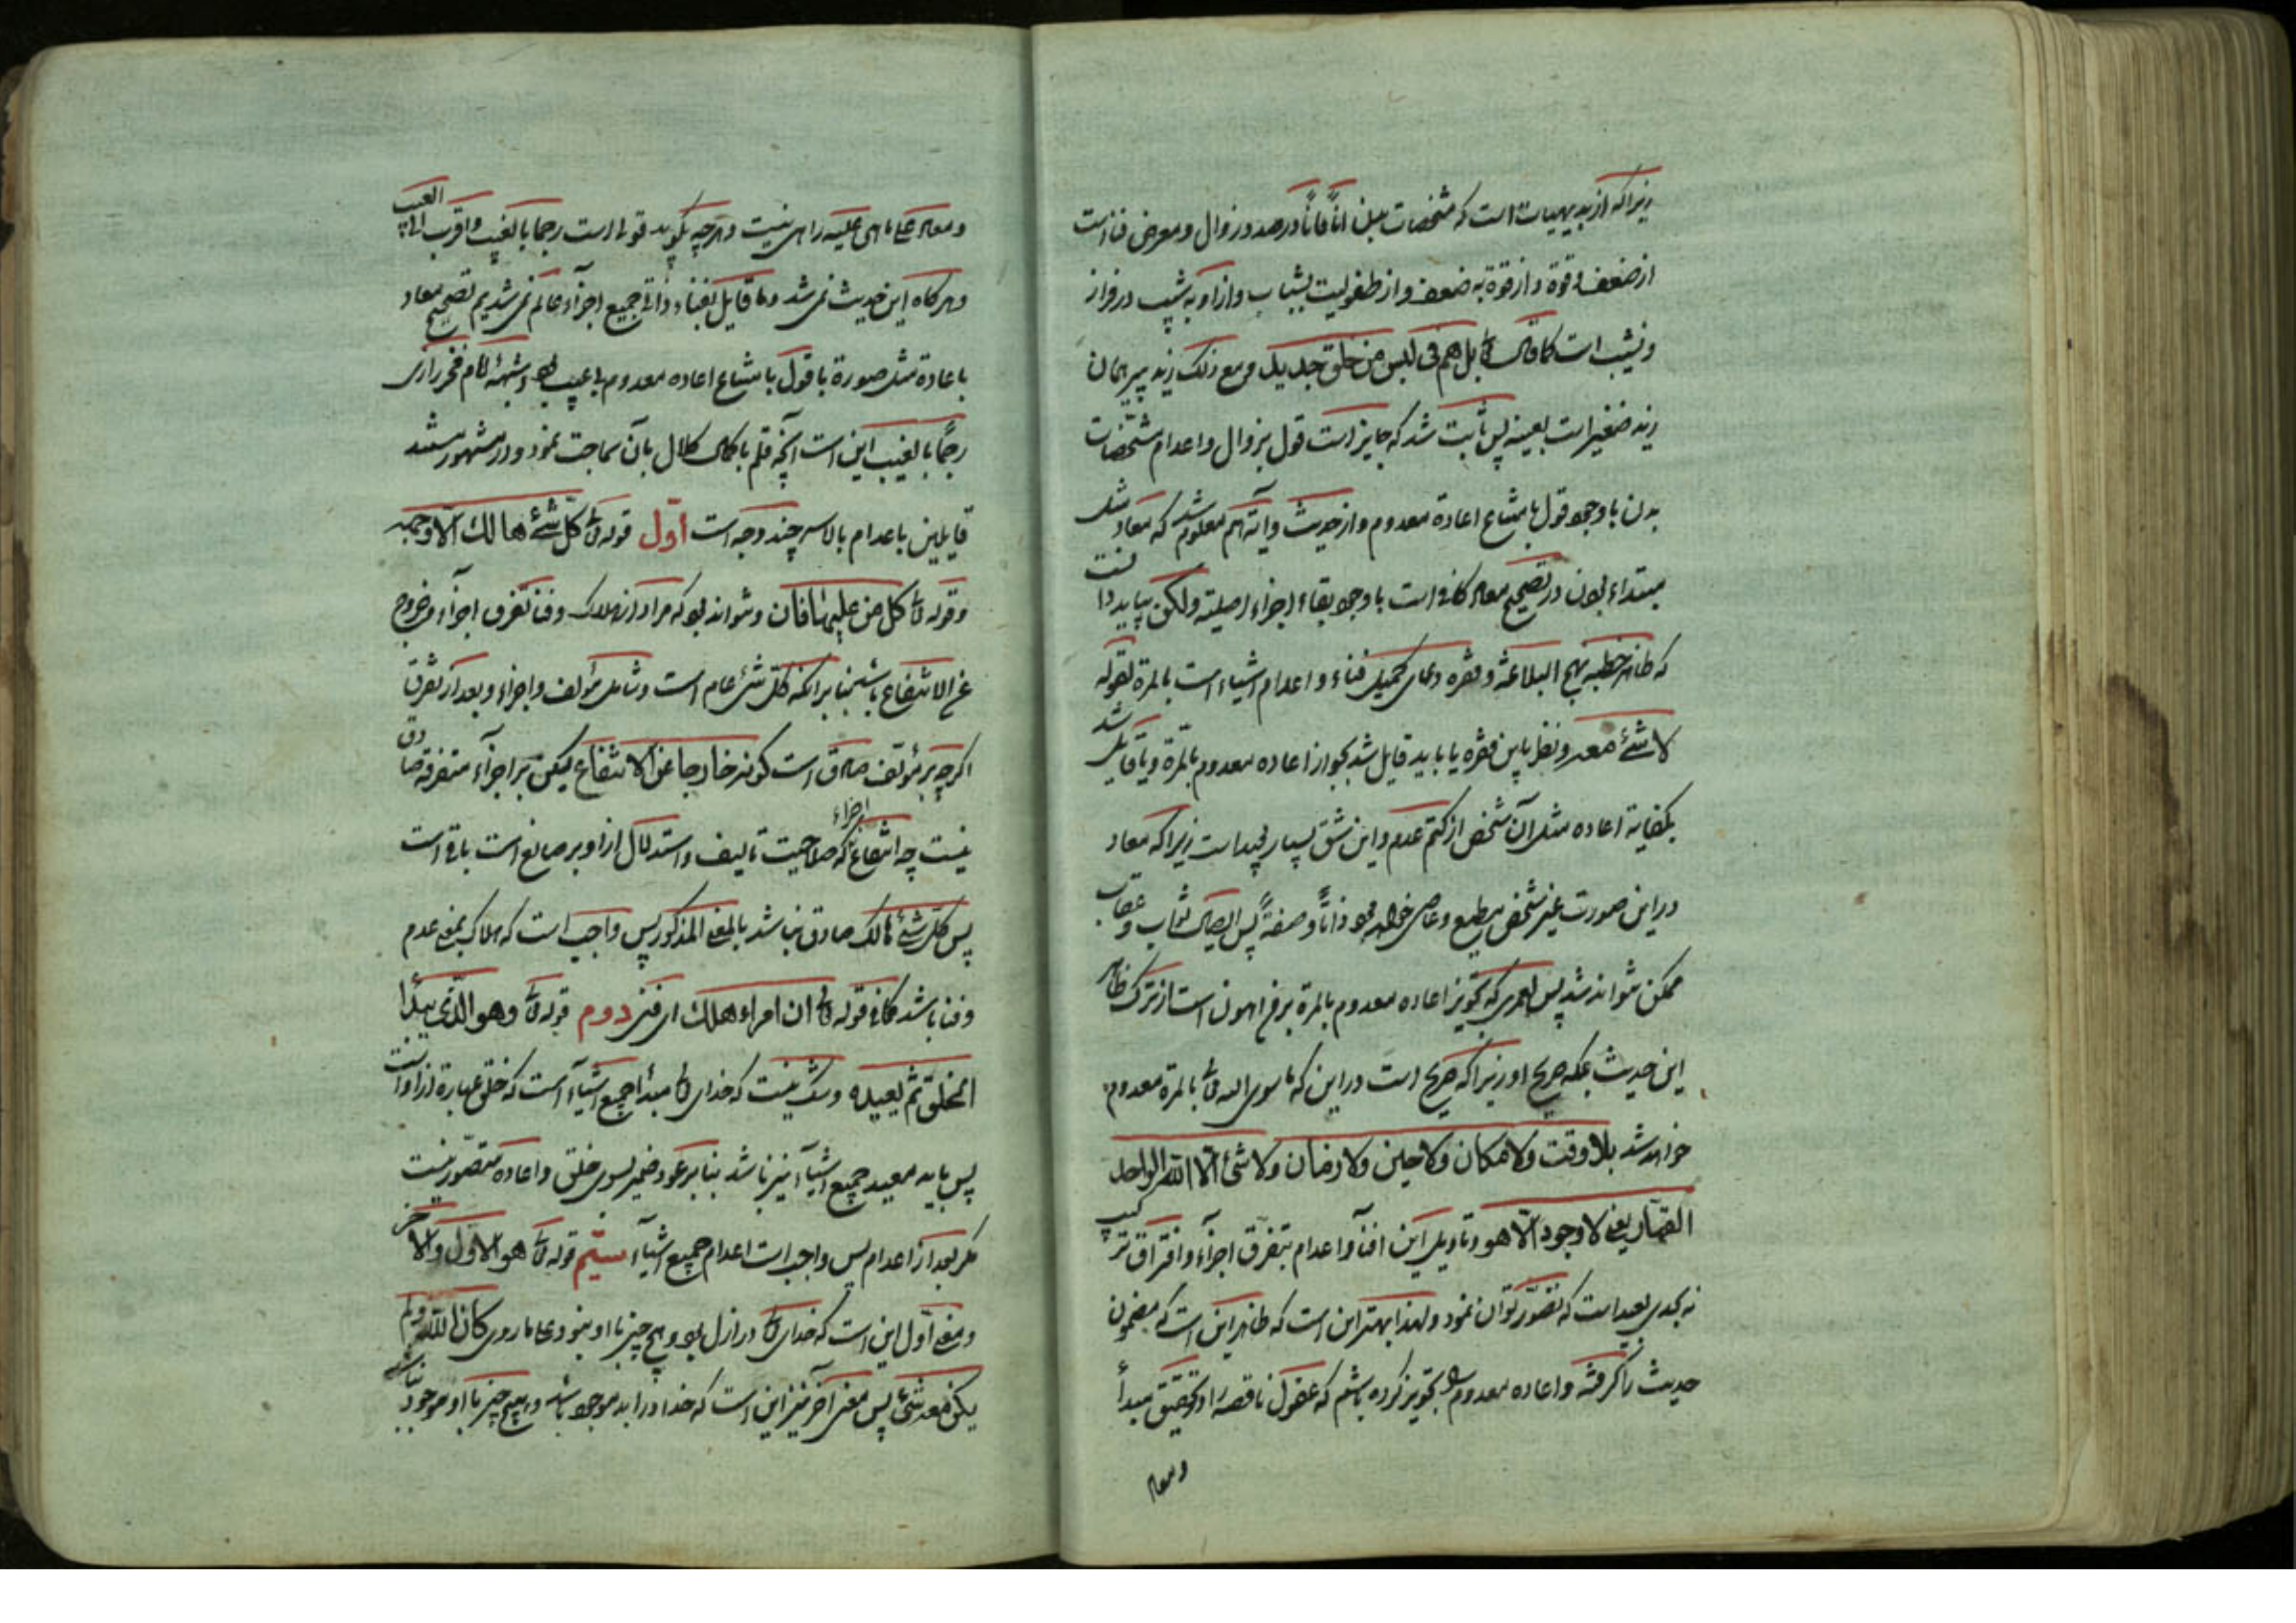 زیراکه از بدیهیات است که مشخصات بدن آناً فآناً در صدد زوال و معرض فنا است
از ضعف بقوة و از قوة به ضعف و از طفولیت بشباب و از او به شیب در فراز
و نشیب است کما قال تع بل هم فی لبس من خلق جدید و مع ذلک زید پیر همان
زید صغیر است بعینه پس ثابت شد که جایز است قول بزوال و اعدام مشخصات
بدن با وجود قول بامتناع اعادة معدوم و از حدیث و آیه هم معلوم شد که معاد مثل
مبتداء بودن در تصحیح معاد کافی است با وجود بقاء اجزاء اصلیة ولکن بباید دانست
که ظاهر خطبه نهج البلاغة و فقره دعای کمیل فناء و اعدام اشیاء است بالمرة لقوله
لا شئ معه و نظر باین فقره یا باید قایل شد بجواز اعاده معدوم بالمرة و یا قایل شد
بکفایة اعاده مثل آن شخص از کتم عدم و این شق بسیار بعید است زیراکه معاد
در این صورت غیر شخص مطیع و عاصی خواهد بود ذاتاً و صفةً پس ایصال ثواب و عقاب
ممکن نتواند شد پس لعمری که تجویز اعاده معدوم بالمرة اهون است از ترک ظاهر
این حدیث بلکه صریح او زیراکه صریح است در این که ما سوی الله تع بالمرة معدوم
خواهد شد بلا وقت ولا مکان ولا حین ولا زمان ولا شئ الا الله الواحد
القهار یعنی لا وجود الا هو و تاویل این افنآء و اعدام بتفرق اجزآء و افتراق ترکیب
نه بحدی بعید است که تصور توان نمود و لهذا بهتر این است که ظاهر این است که مضمون
حدیث را گرفته و اعاده معدوم تجویز کرده باشم که عقول ناقصه را و تحقیق مبدأ
و معاد
و معاد علی ما هی علیه راهی نیست و هر چه بگوید قولی است رجما بالغیب و اقرب الی العیب
و هرگاه این حدیث نمی شد و ما قایل بفناء ذاتی جمیع اجزآء عالم نمی شدیم تصحیح معاد
باعادة مثل صورة با قول بامتناع اعاده معدوم بی عیب بود و شبهه امام فخر رازی
رجماً بالغیب این است آنچه قلم با کمال کلال بآن سماجت نمود و در مشهور مستند
قایلین باعدام بالاسر چند وجه است اول قوله تع کل شئ هالک الا وجهه
و قوله تع کل من علیها فان و نتواند بود که مراد از هلاک و فنا تفرق اجزآء و خروج
عن الانتفاع باشد بنا بر آنکه کل شئ عام است و شامل مؤلف و اجزاء و بعد از تفرق
اگرچه بر مؤلف صادق است کونه خارجا عن الانتفاع لیکن بر اجزآء متفرقه صادق
نیست چه انتفاع اجزاء که صلاحیت تالیف و استدلال از او بر صانع است باقی است
پس کل شئ هالک صادق نباشد بالمعنی المذکور پس واجب است که هلاک بمعنی عدم
و فنا باشد کما فی قوله تع ان امرء هلک ای فنی دوم قوله تع و هو الذی یبدأ
الخلق ثم یعیده و شک نیست که خدای تع مبدأ جمیع اشیآء است که خلق عبارة از اوست
پس باید معید جمیع اشیآء نیز باشد بنا بر عود ضمیر بسوی خلق و اعاده متصور نیست
مگر بعد از اعدام پس واجب است اعدام جمیع اشیآء سیم قوله تع هو الاول و الآخر
و معنی اول این است که خدای تع در ازل بود و هیچ چیز با او نبود کما روی کان الله و لم
یکن معه شئ پس معنی آخر نیز این است که خدا در ابد موجود باشد و هیچ چیز با او موجود نباشد